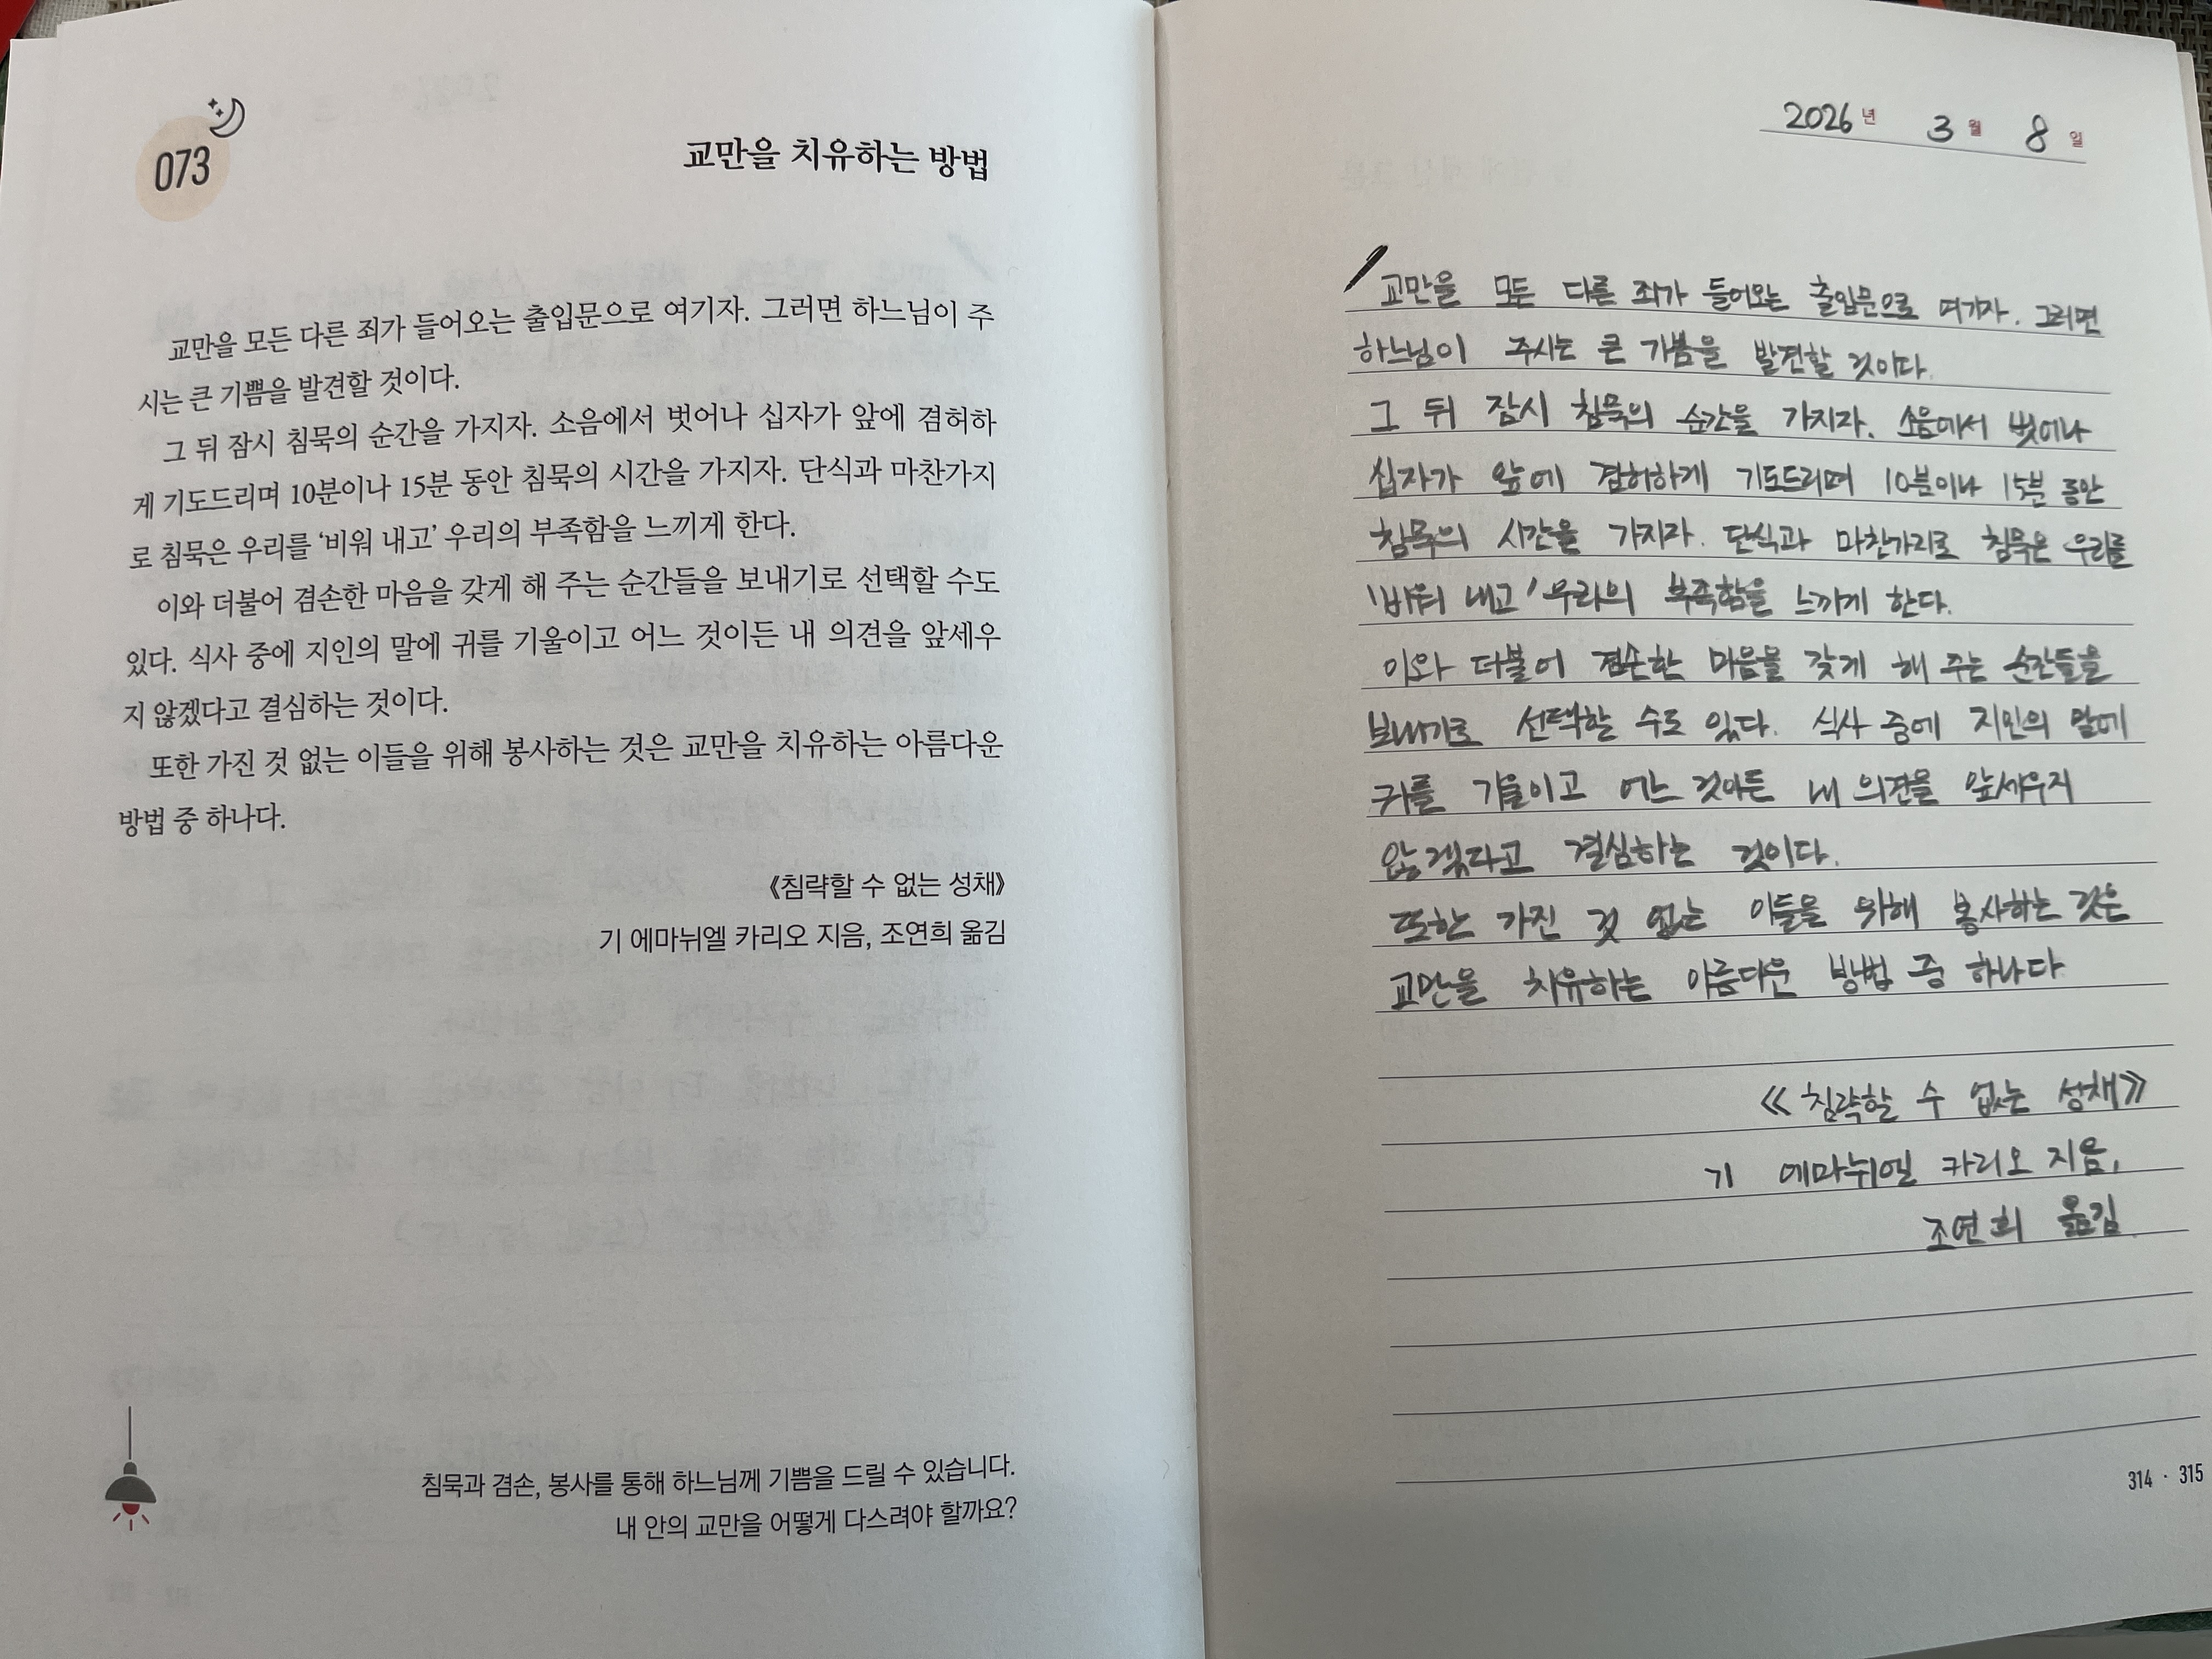 073
교만을 치유하는 방법
교만을 모든 다른 죄가 들어오는 출입문으로 여기자. 그러면 하느님이 주
시는 큰 기쁨을 발견할 것이다.
그 뒤 잠시 침묵의 순간을 가지자. 소음에서 벗어나 십자가 앞에 겸허하
게 기도드리며 10분이나 15분 동안 침묵의 시간을 가지자. 단식과 마찬가지
로 침묵은 우리를 ‘비워 내고’ 우리의 부족함을 느끼게 한다.
이와 더불어 겸손한 마음을 갖게 해 주는 순간들을 보내기로 선택할 수도
있다. 식사 중에 지인의 말에 귀를 기울이고 어느 것이든 내 의견을 앞세우
지 않겠다고 결심하는 것이다.
또한 가진 것 없는 이들을 위해 봉사하는 것은 교만을 치유하는 아름다운
방법 중 하나다.
《침략할 수 없는 성채》
기 에마뉘엘 카리오 지음, 조연희 옮김
침묵과 겸손, 봉사를 통해 하느님께 기쁨을 드릴 수 있습니다.
내 안의 교만을 어떻게 다스려야 할까요?
2026년 3월 8일
교만을 모든 다른 죄가 들어오는 출입문으로 여기자. 그러면
하느님이 주시는 큰 기쁨을 발견할 것이다.
그 뒤 잠시 침묵의 순간을 가지자. 소음에서 벗어나
십자가 앞에 겸허하게 기도드리며 10분이나 15분 동안
침묵의 시간을 가지자. 단식과 마찬가지로 침묵은 우리를
'비워 내고' 우리의 부족함을 느끼게 한다.
이와 더불어 겸손한 마음을 갖게 해 주는 순간들을
보내기로 선택할 수도 있다. 식사 중에 지인의 말에
귀를 기울이고 어느 것이든 내 의견을 앞세우지
않겠다고 결심하는 것이다.
또한 가진 것 없는 이들을 위해 봉사하는 것은
교만을 치유하는 아름다운 방법 중 하나다
《침략할 수 없는 성채》
기 에마뉘엘 카리오 지음,
조연희 옮김
314 · 315